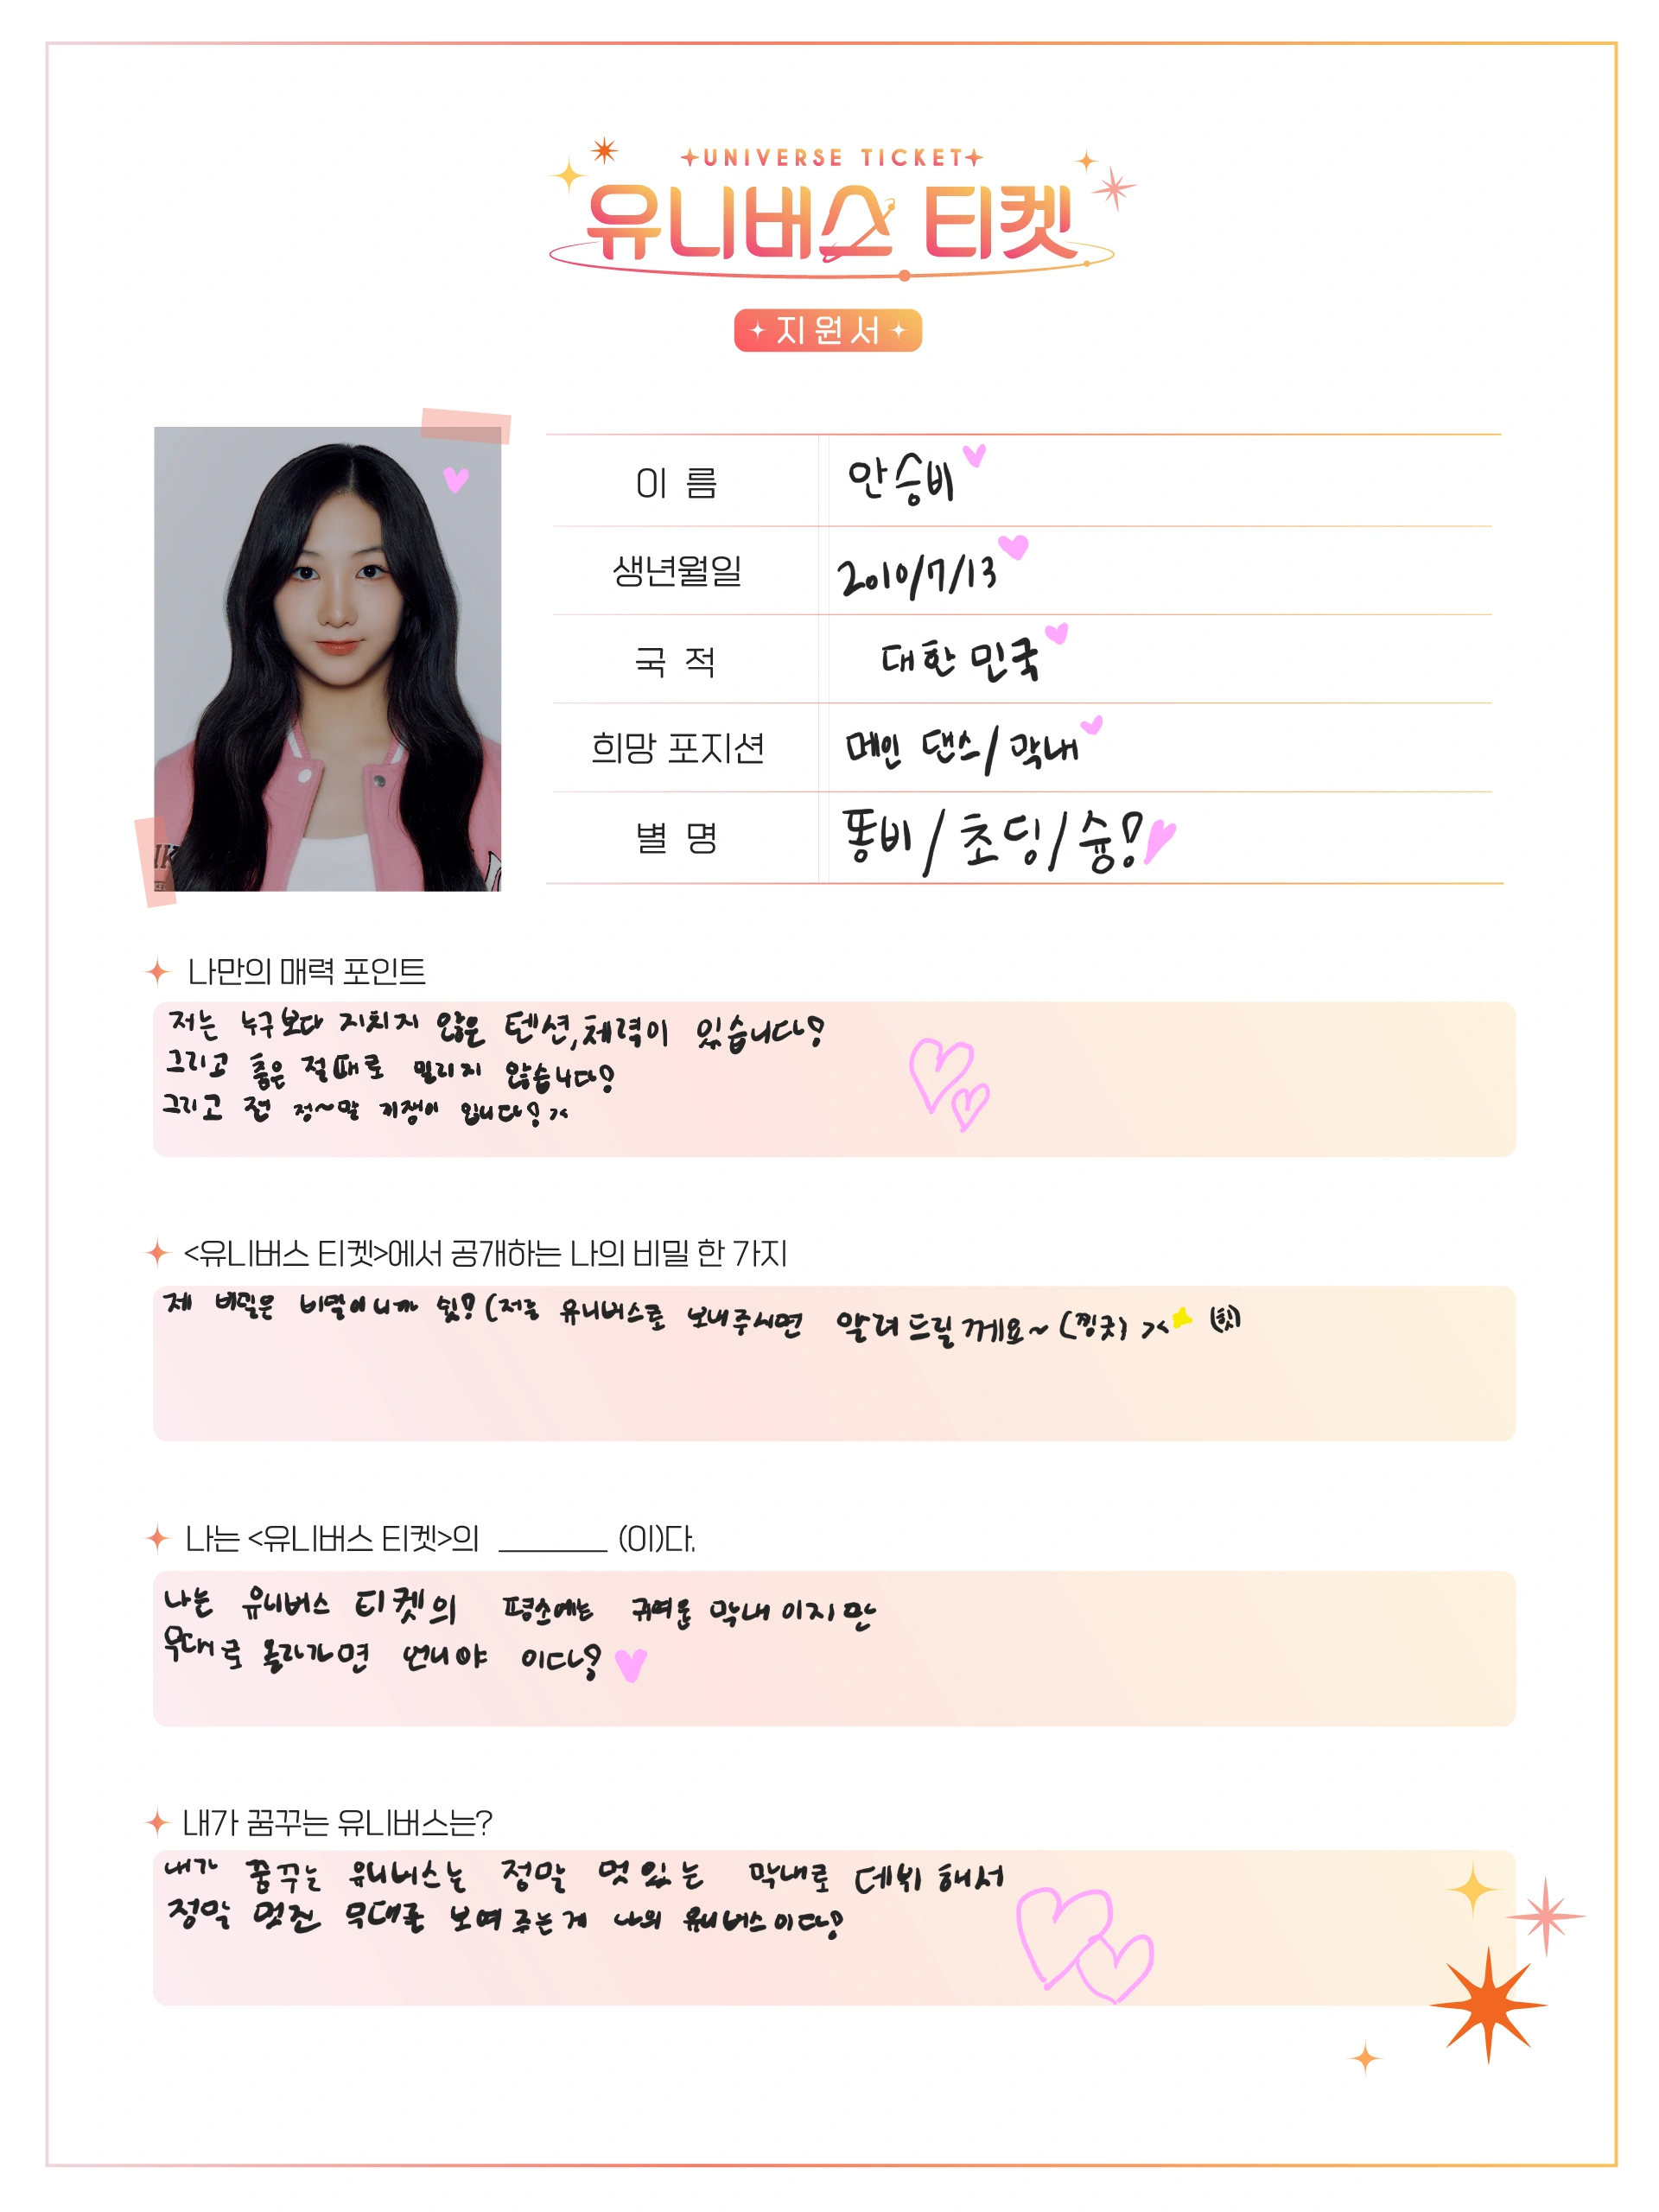 UNIVERSE TICKET
유니버스 티켓
지원서
이름 안승비
생년월일 2010/7/13
국적 대한민국
희망 포지션 메인 댄스/막내
별명 똥비/초딩/슝!
나만의 매력 포인트
저는 누구보다 지치지 않은 텐션,체력이 있습니다!
그리고 춤은 절때로 밀리지 않습니다!
그리고 전 정~말 귀쟁이 입니다! ><
<유니버스 티켓>에서 공개하는 나의 비밀 한 가지
제 비밀은 비밀이니까 쉿! (저를 유니버스로 보내주시면 알려드릴께요~ (찡긋) >< (힛)
나는 <유니버스 티켓>의 ______ (이)다.
나는 유니버스 티켓의 평소에는 귀여운 막내 이지만
무대로 올라가면 언니야 이다!
내가 꿈꾸는 유니버스는?
내가 꿈꾸는 유니버스는 정말 멋있는 막내로 데뷔 해서
정말 멋진 무대를 보여주는게 나의 유니버스이다!